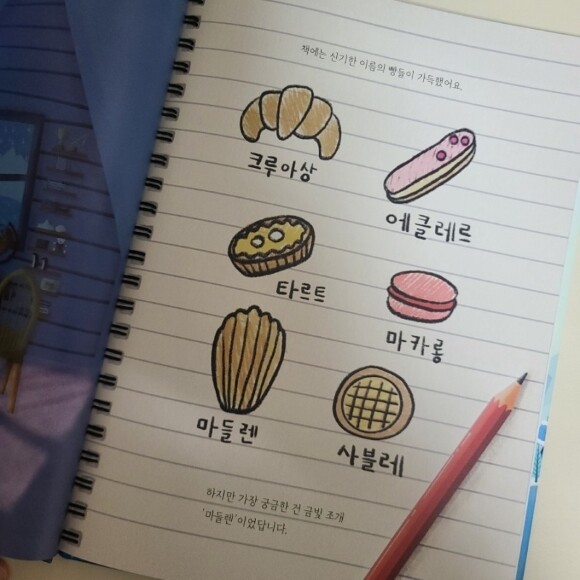 책에는 신기한 이름의 빵들이 가득했어요.
크루아상
에클레르
타르트
마카롱
마들렌
사블레
하지만 가장 궁금한 건 금빛 조개
'마들렌'이었답니다.